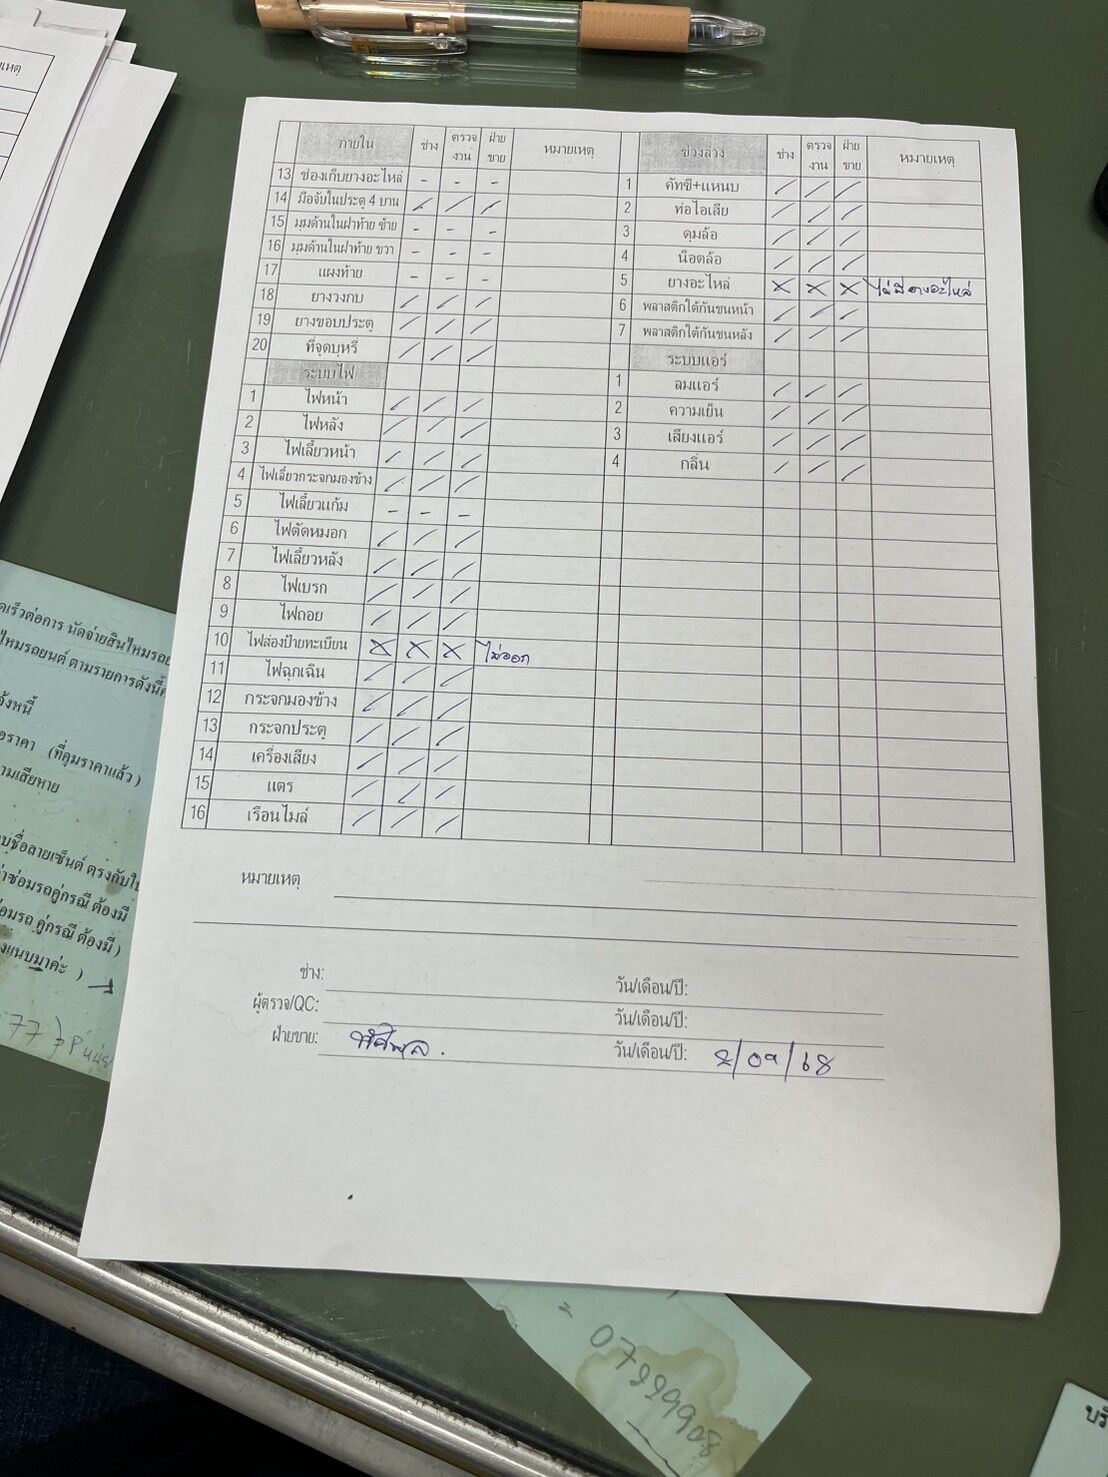 เหตุ
ภายใน ช่าง ตรวจงาน ฝ่ายขาย หมายเหตุ
13 ช่องเก็บยางอะไหล่ - - -
14 มือจับในประตู 4 บาน / / /
15 มุมด้านในฝาท้าย ซ้าย - - -
16 มุมด้านในฝาท้าย ขวา - - -
17 แผงท้าย - - -
18 ยางวงกบ / / /
19 ยางขอบประตู / / /
20 ที่จุดบุหรี่ / / /
ระบบไฟ
1 ไฟหน้า / / /
2 ไฟหลัง / / /
3 ไฟเลี้ยวหน้า / / /
4 ไฟเลี้ยวกระจกมองข้าง / / /
5 ไฟเลี้ยวแก้ม - - -
6 ไฟตัดหมอก / / /
7 ไฟเลี้ยวหลัง / / /
8 ไฟเบรก / / /
9 ไฟถอย / / /
10 ไฟส่องป้ายทะเบียน X X X ไม่ออก
11 ไฟฉุกเฉิน / / /
12 กระจกมองข้าง / / /
13 กระจกประตู / / /
14 เครื่องเสียง / / /
15 แตร / / /
16 เรือนไมล์ / / /
ช่วงล่าง ช่าง ตรวจงาน ฝ่ายขาย หมายเหตุ
1 คัทซี+แหนบ / / /
2 ท่อไอเสีย / / /
3 ดุมล้อ / / /
4 น็อตล้อ / / /
5 ยางอะไหล่ X X X ไม่มียางอะไหล่
6 พลาสติกใต้กันชนหน้า / / /
7 พลาสติกใต้กันชนหลัง / / /
ระบบแอร์
1 ลมแอร์ / / /
2 ความเย็น / / /
3 เสียงแอร์ / / /
4 กลิ่น / / /
หมายเหตุ
ช่าง: วัน/เดือน/ปี:
ผู้ตรวจ/QC: วัน/เดือน/ปี:
ฝ่ายขาย: วัน/เดือน/ปี: 2/09/68
ดเร็วต่อการ นัดจ่ายสินไหมรถย
ไหมรถยนต์ ตามรายการดังนี้
จ้งหนี้
อราคา (ที่คุมราคาแล้ว)
ามเสียหาย
บชื่อลายเซ็นต์ ตรงกับใบ
่าซ่อมรถคู่กรณี ต้องมี
่อมรถ คู่กรณี ต้องมี)
งแนบมาค่ะ )
77
= 079299908
บริ